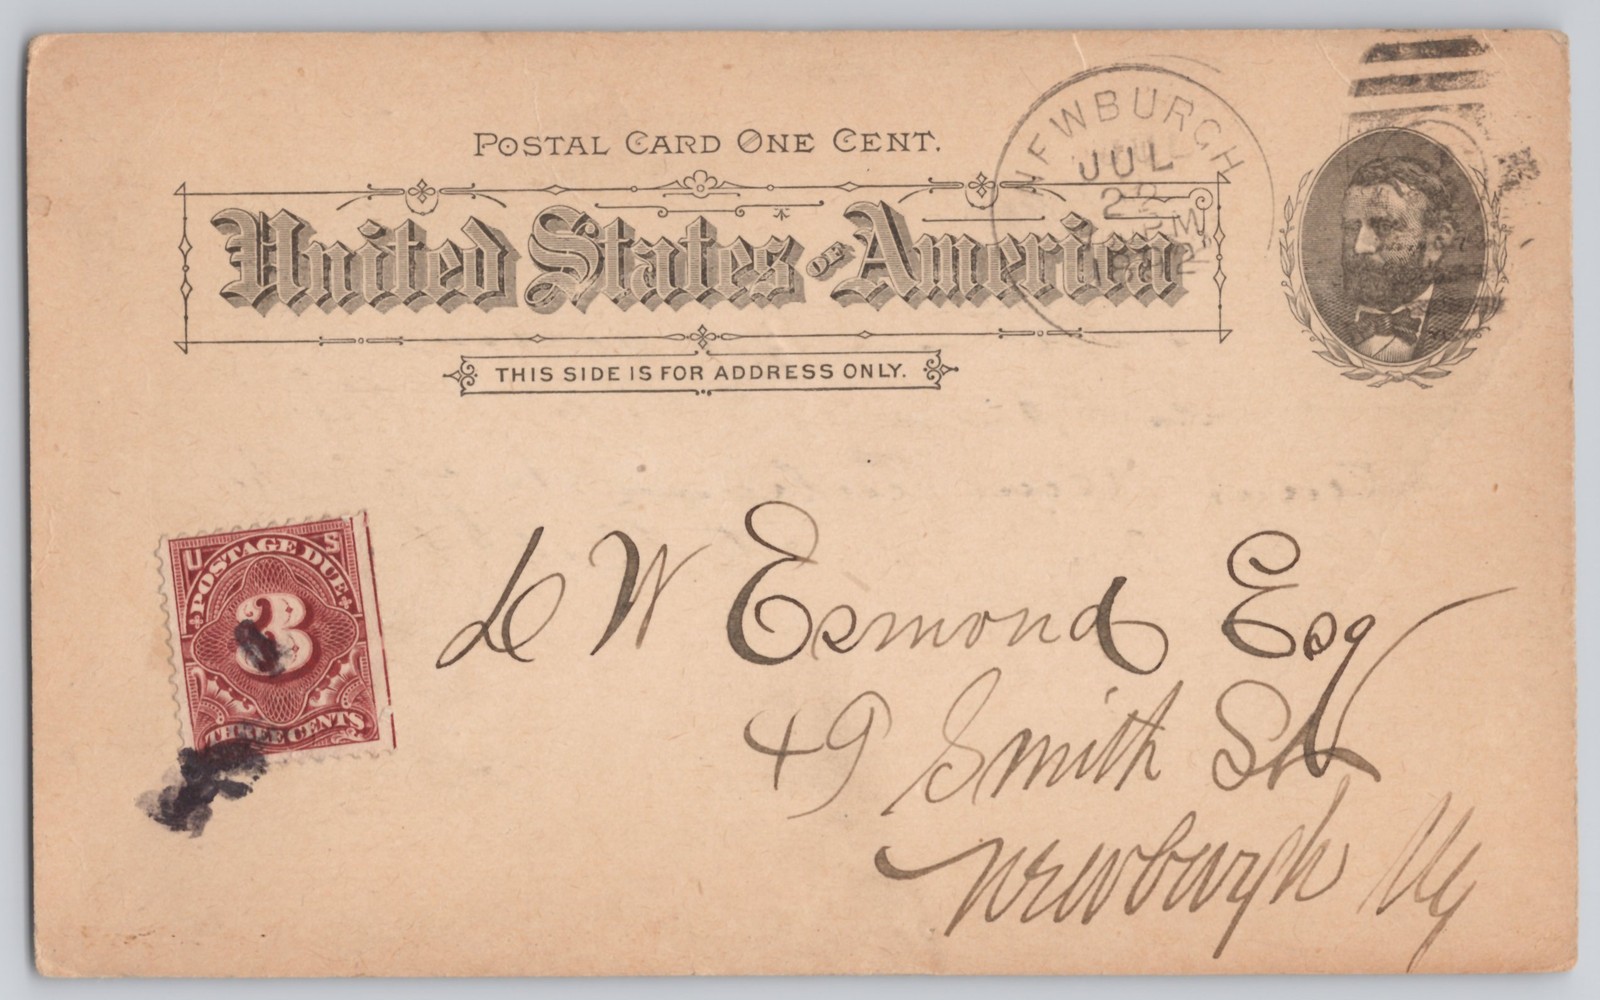 POSTAL CARD ONE CENT.
United States OF America
THIS SIDE IS FOR ADDRESS ONLY.
NEWBURGH
JUL
22
PM
U S
POSTAGE DUE
3
THREE CENTS
L W Esmond Esq
49 Smith St
Newburgh Ny